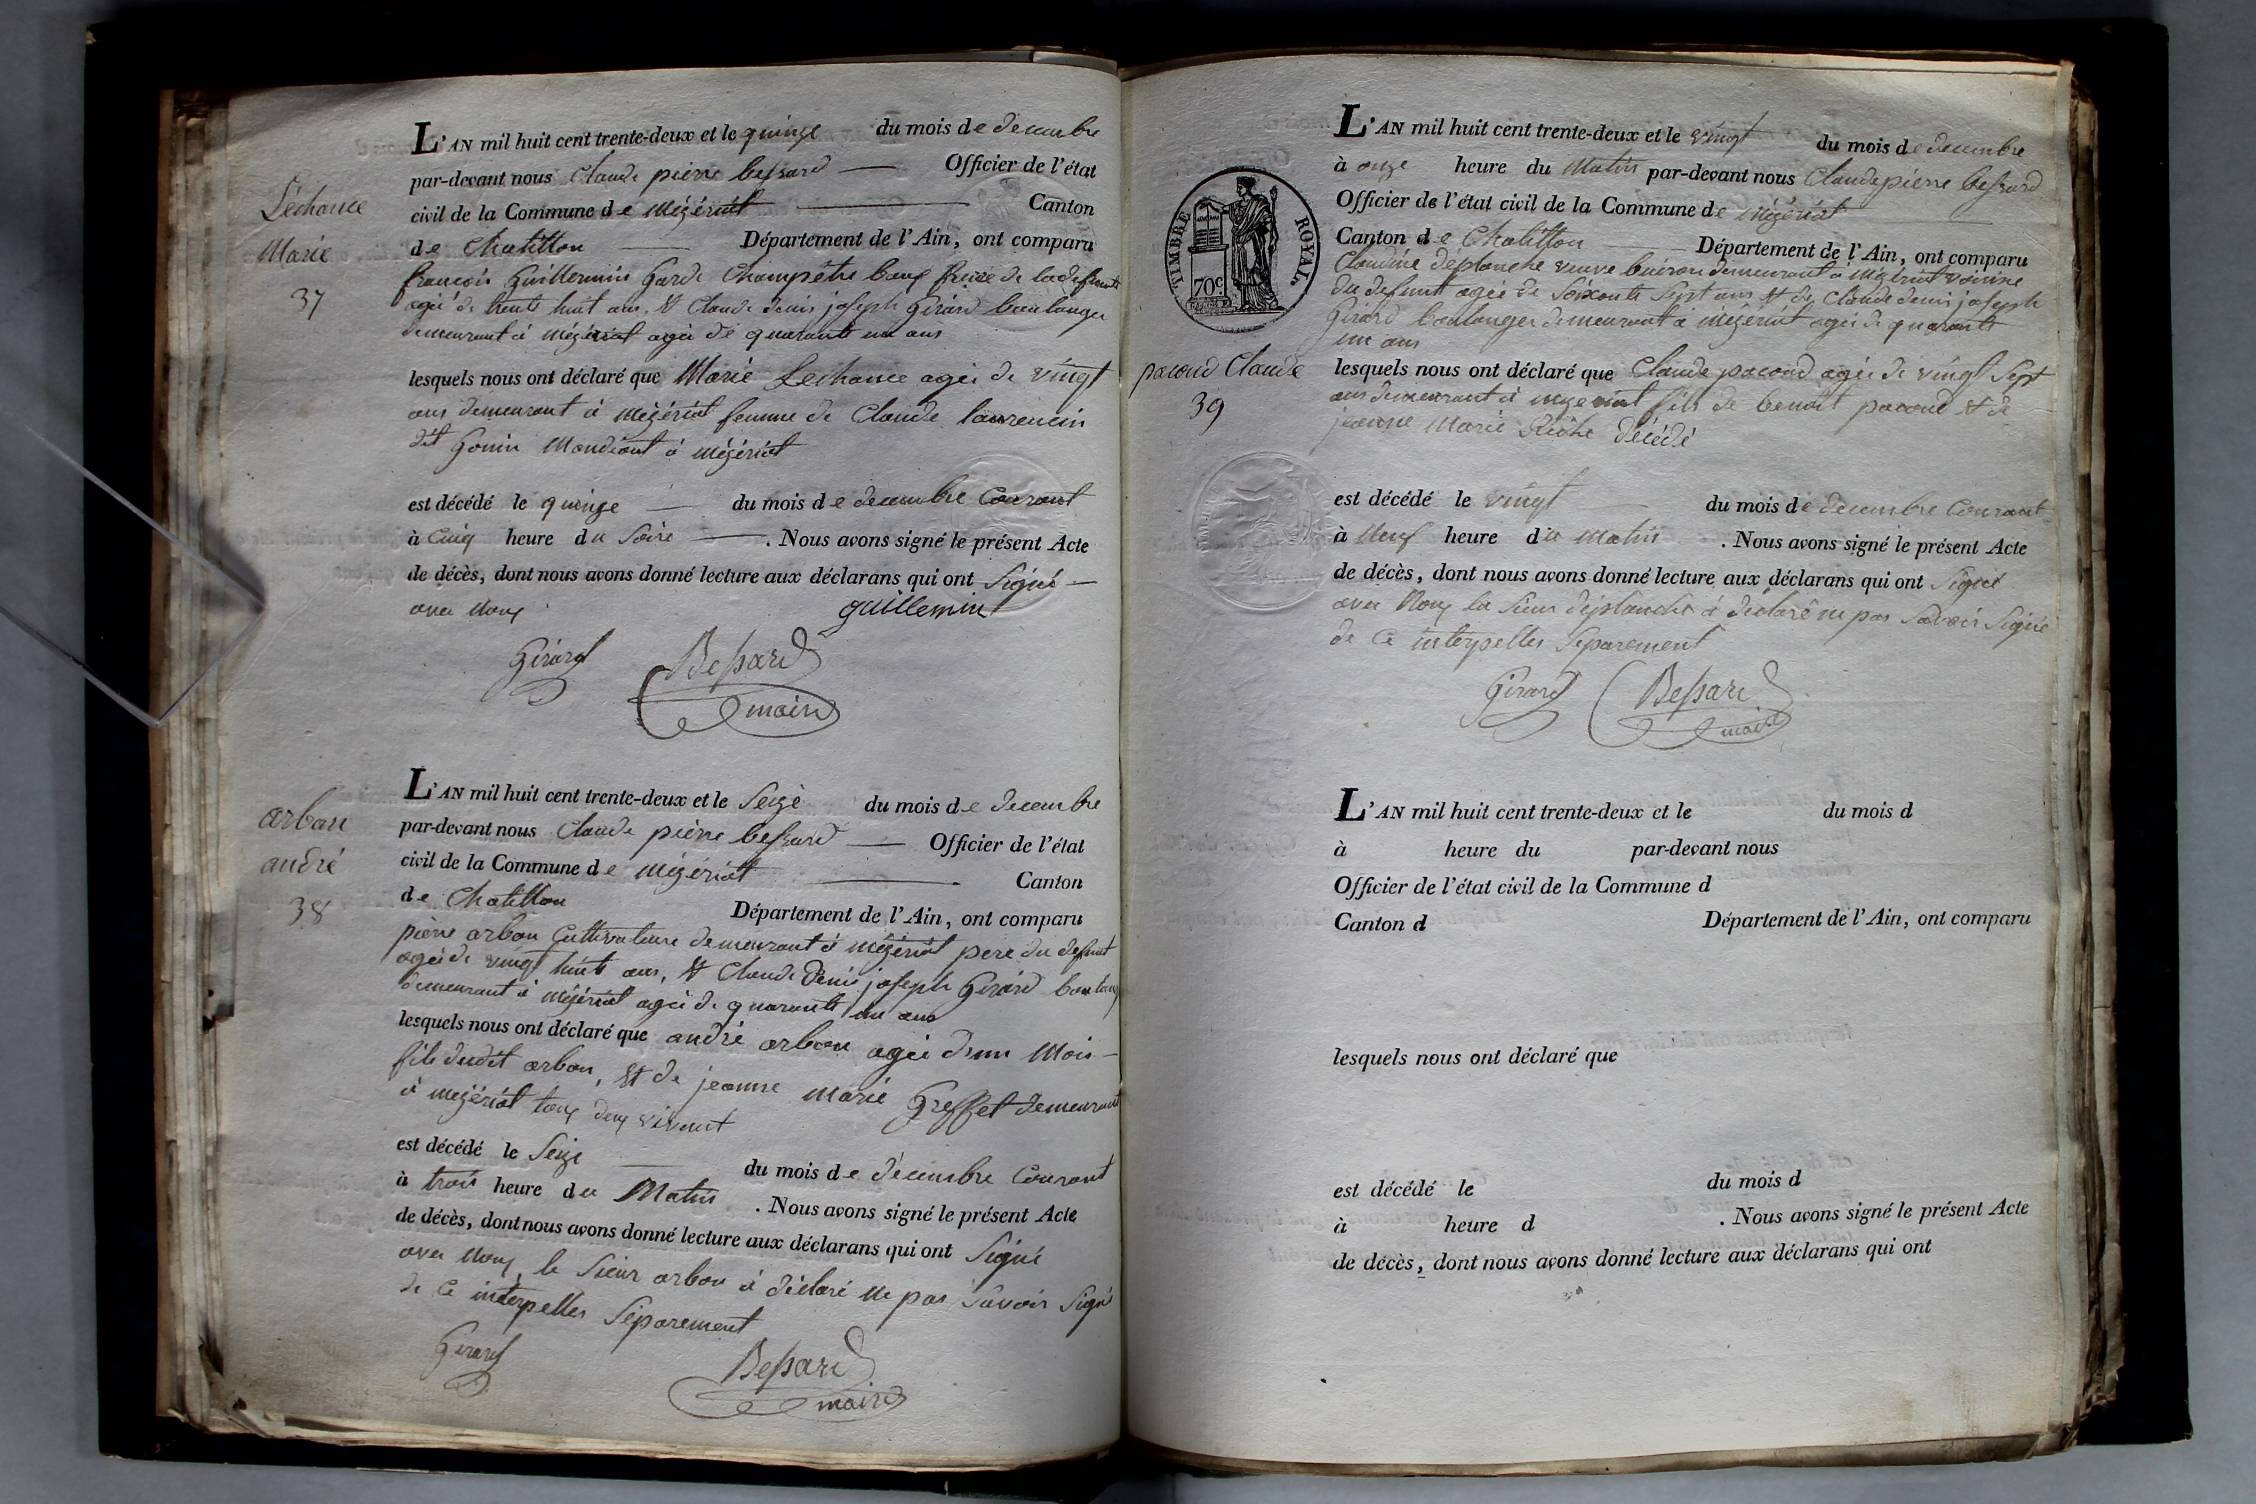 Léchance
Marie
37
L'AN mil huit cent trente-deux et le quinze du mois de decembre
par-devant nous Claude pierre bessard Officier de l'état
civil de la Commune de mézériat Canton
de Chatillon Département de l'Ain, ont comparu
françois Guillermin Garde Champêtre beau frere de la defunte
agée de trente huit ans, et Claude denis joseph Girard boulanger
demeurant à mézériat agée de quarante un ans
lesquels nous ont déclaré que Marie Lechance agée de vingt
ans demeurant à mézériat femme de Claude laurencin
dit Gonin Mondiant à mézériat
est décédé le quinze du mois de decembre Courant
à Cinq heure du Soire . Nous avons signé le présent Acte
de décès, dont nous avons donné lecture aux déclarans qui ont Signé
avec Nous guillemin
Girard Bessard
maire
arban
andré
38
L'AN mil huit cent trente-deux et le Seize du mois de decembre
par-devant nous Claude pierre bessard Officier de l'état
civil de la Commune de mézériat Canton
de Chatillon Département de l'Ain, ont comparu
pierre arban Cultivateure demeurant à mézériat pere du defunt
agée de vingt huit ans, et Claude denis joseph Girard boulang
demeurant à mézériat agée de quarante un ans
lesquels nous ont déclaré que andré arban agée d'un Mois
fils dudit arban, et de jeanne marie Greffet demeurant
à mézériat tous deux vivant
est décédé le Seize du mois de décembre Courant
à trois heure du Matin . Nous avons signé le présent Acte
de décès, dont nous avons donné lecture aux déclarans qui ont Signé
avec Nous, le Sieur arban à déclaré ne pas Savoir Signé
de Ce interpelles Séparement
Girard Bessard
maire
TIMBRE ROYAL
70c
pacoud Claude
39
L'AN mil huit cent trente-deux et le vingt du mois de decembre
à onze heure du Matin par-devant nous Claude pierre bessard
Officier de l'état civil de la Commune de mézériat
Canton de Chatillon Département de l'Ain, ont comparu
Claudine deplanche veuve buiron demeurant à mézériat voisine
du defunt agée de Soixante Sept ans et de Claude denis joseph
Girard boulanger demeurant à mézériat agée de quarante
un ans
lesquels nous ont déclaré que Claude pacoud agée de vingt Sept
ans demeurant à mézériat fils de benoît pacoud et de
jeanne Marie Riche décédé
est décédé le vingt du mois de decembre Courant
à Neuf heure du matin . Nous avons signé le présent Acte
de décès, dont nous avons donné lecture aux déclarans qui ont Signé
avec Nous la Sieur déplanche à déclaré ne pas Savoir Signé
de Ce interpelles Séparement
Girard Bessard
maire
L'AN mil huit cent trente-deux et le du mois d
à heure du par-devant nous
Officier de l'état civil de la Commune d
Canton d Département de l'Ain, ont comparu
lesquels nous ont déclaré que
est décédé le du mois d
à heure d . Nous avons signé le présent Acte
de décès, dont nous avons donné lecture aux déclarans qui ont